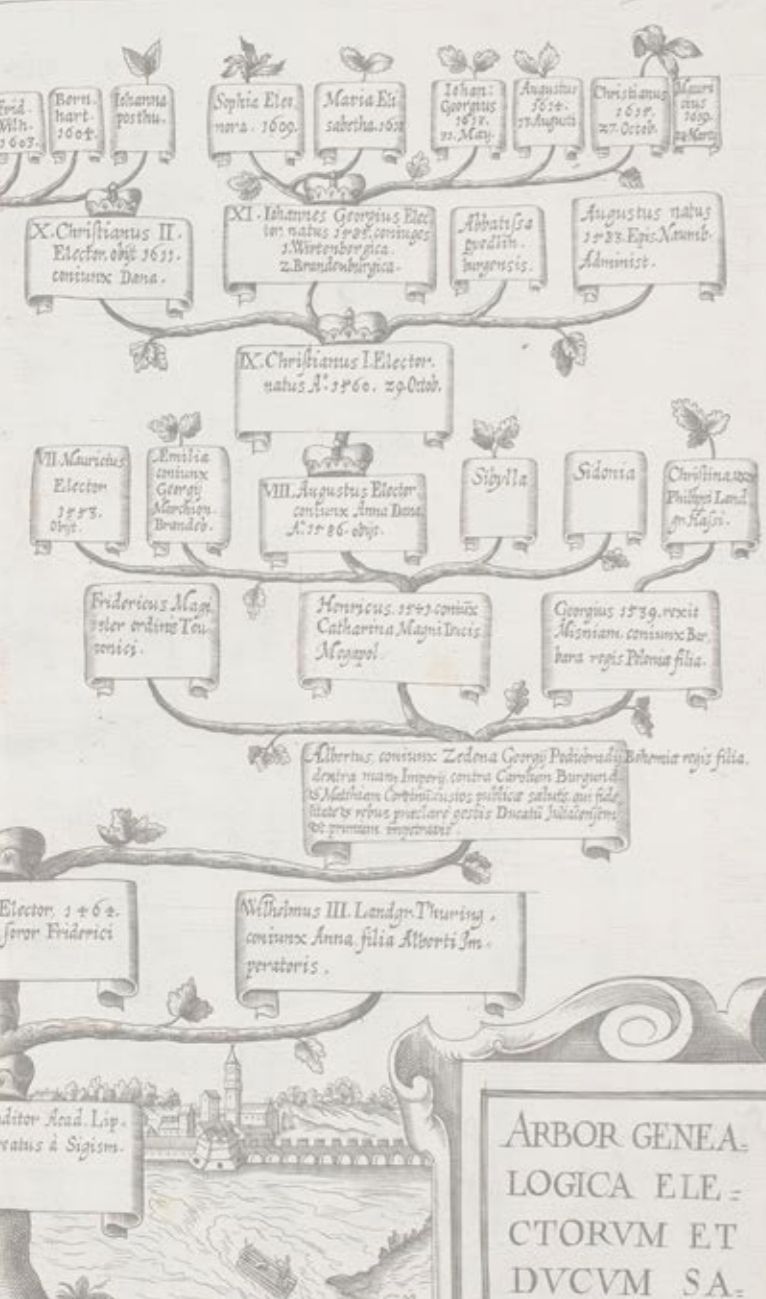 Frid.
Wilh.
1603.
Bern-
hart.
1604.
Iohanna
posthu.
Sophia Eleo
nora. 1609.
Maria Eli
sabetha.
Iohan:
Georgius
21. May.
Augustus
1614.
13. Augusti.
Christianus
27. Octob.
Mauri
cius
1619.
X. Christianus II.
Elector. obijt 1611.
coniunx Dana.
XI. Iohannes Georgius Elec
tor, natus 1585. coniuges
1. Wirtenbergica.
2. Brandenburgica.
Abbatissa
quedlin-
burgensis.
Augustus natus
Epis. Naumb.
Administ.
IX. Christianus I. Elector.
natus A.° 1560. 29. Octob.
VII. Mauricius
Elector
1553.
Obijt.
Æmilia
coniunx
Georgij
Marchion.
Brandeb.
VIII. Augustus Elector
coniunx Anna Dana.
A.° 1586. obijt.
Sibylla
Sidonia
Christina uxor
Philippi Land
gr. Hassi.
Fridericus Magi
ster ordinis Teu
tonici.
Henricus. 1541. coniũx
Catharina Magni Ducis
Megapol.
Georgius 1539. rexit
Misniam. coniunx Bar
bara regis Poloniæ filia.
Albertus, coniunx Zedena Georgij Podiebradij Bohemiæ regis filia.
dextra manꝰ Imperij, contra Carolum Burgund.
& Matthiam Corvinũ, custos publicæ salutis, qui fide
litate & rebus præclare gestis Ducatũ Juliacensem
primum impetravit.
Elector, 1464.
soror Friderici
Wilhelmus III. Landgr. Thuring.
coniunx Anna filia Alberti Im-
peratoris.
ditor Acad. Lip.
reatus à Sigism.
ARBOR GENEA=
LOGICA ELE=
CTORVM ET
DVCVM SA=